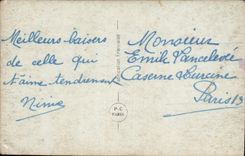 Meilleurs baisers
de celle qui
t'aime tendrement
Nime
Monsieur
Emile
Caserne Lourcine
Paris 13
P.C
PARIS